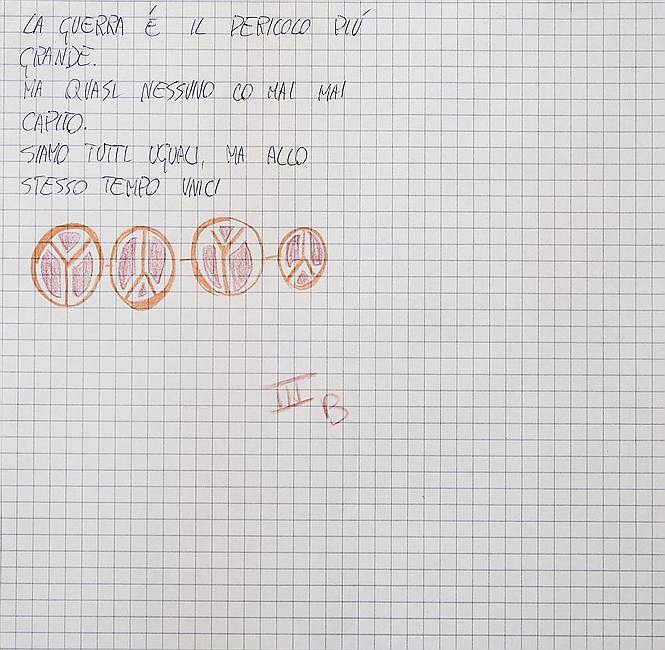 LA GUERRA É IL PERICOLO PIÚ
GRANDE.
MA QUASI NESSUNO CO MAI MAI
CAPITO.
SIAMO TUTTI UGUALI, MA ALLO
STESSO TEMPO UNICI
III B